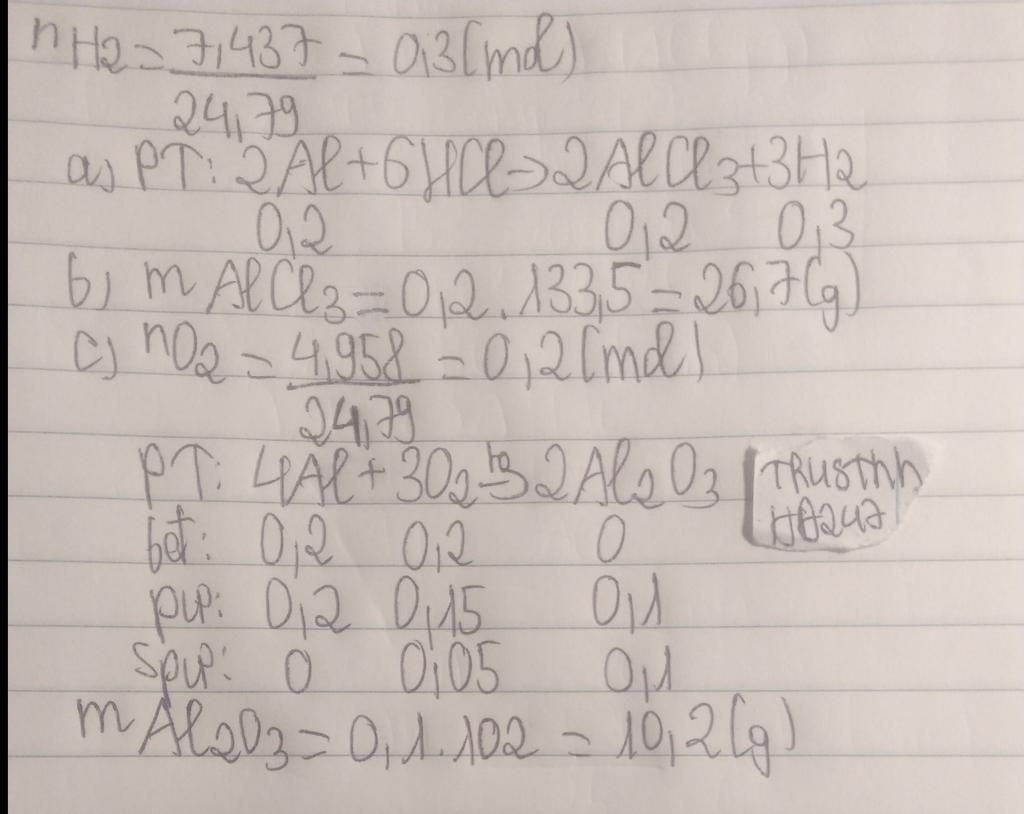 nH2 = 7,437 / 24,79 = 0,3(mol)
a) PT: 2Al + 6HCl → 2AlCl3 + 3H2
0,2 0,2 0,3
b) mAlCl3 = 0,2.133,5 = 26,7(g)
c) nO2 = 4,958 / 24,79 = 0,2(mol)
PT: 4Al + 3O2 → 2Al2O3
bđ: 0,2 0,2 0
pư: 0,2 0,15 0,1
spư: 0 0,05 0,1
mAl2O3 = 0,1.102 = 10,2(g)